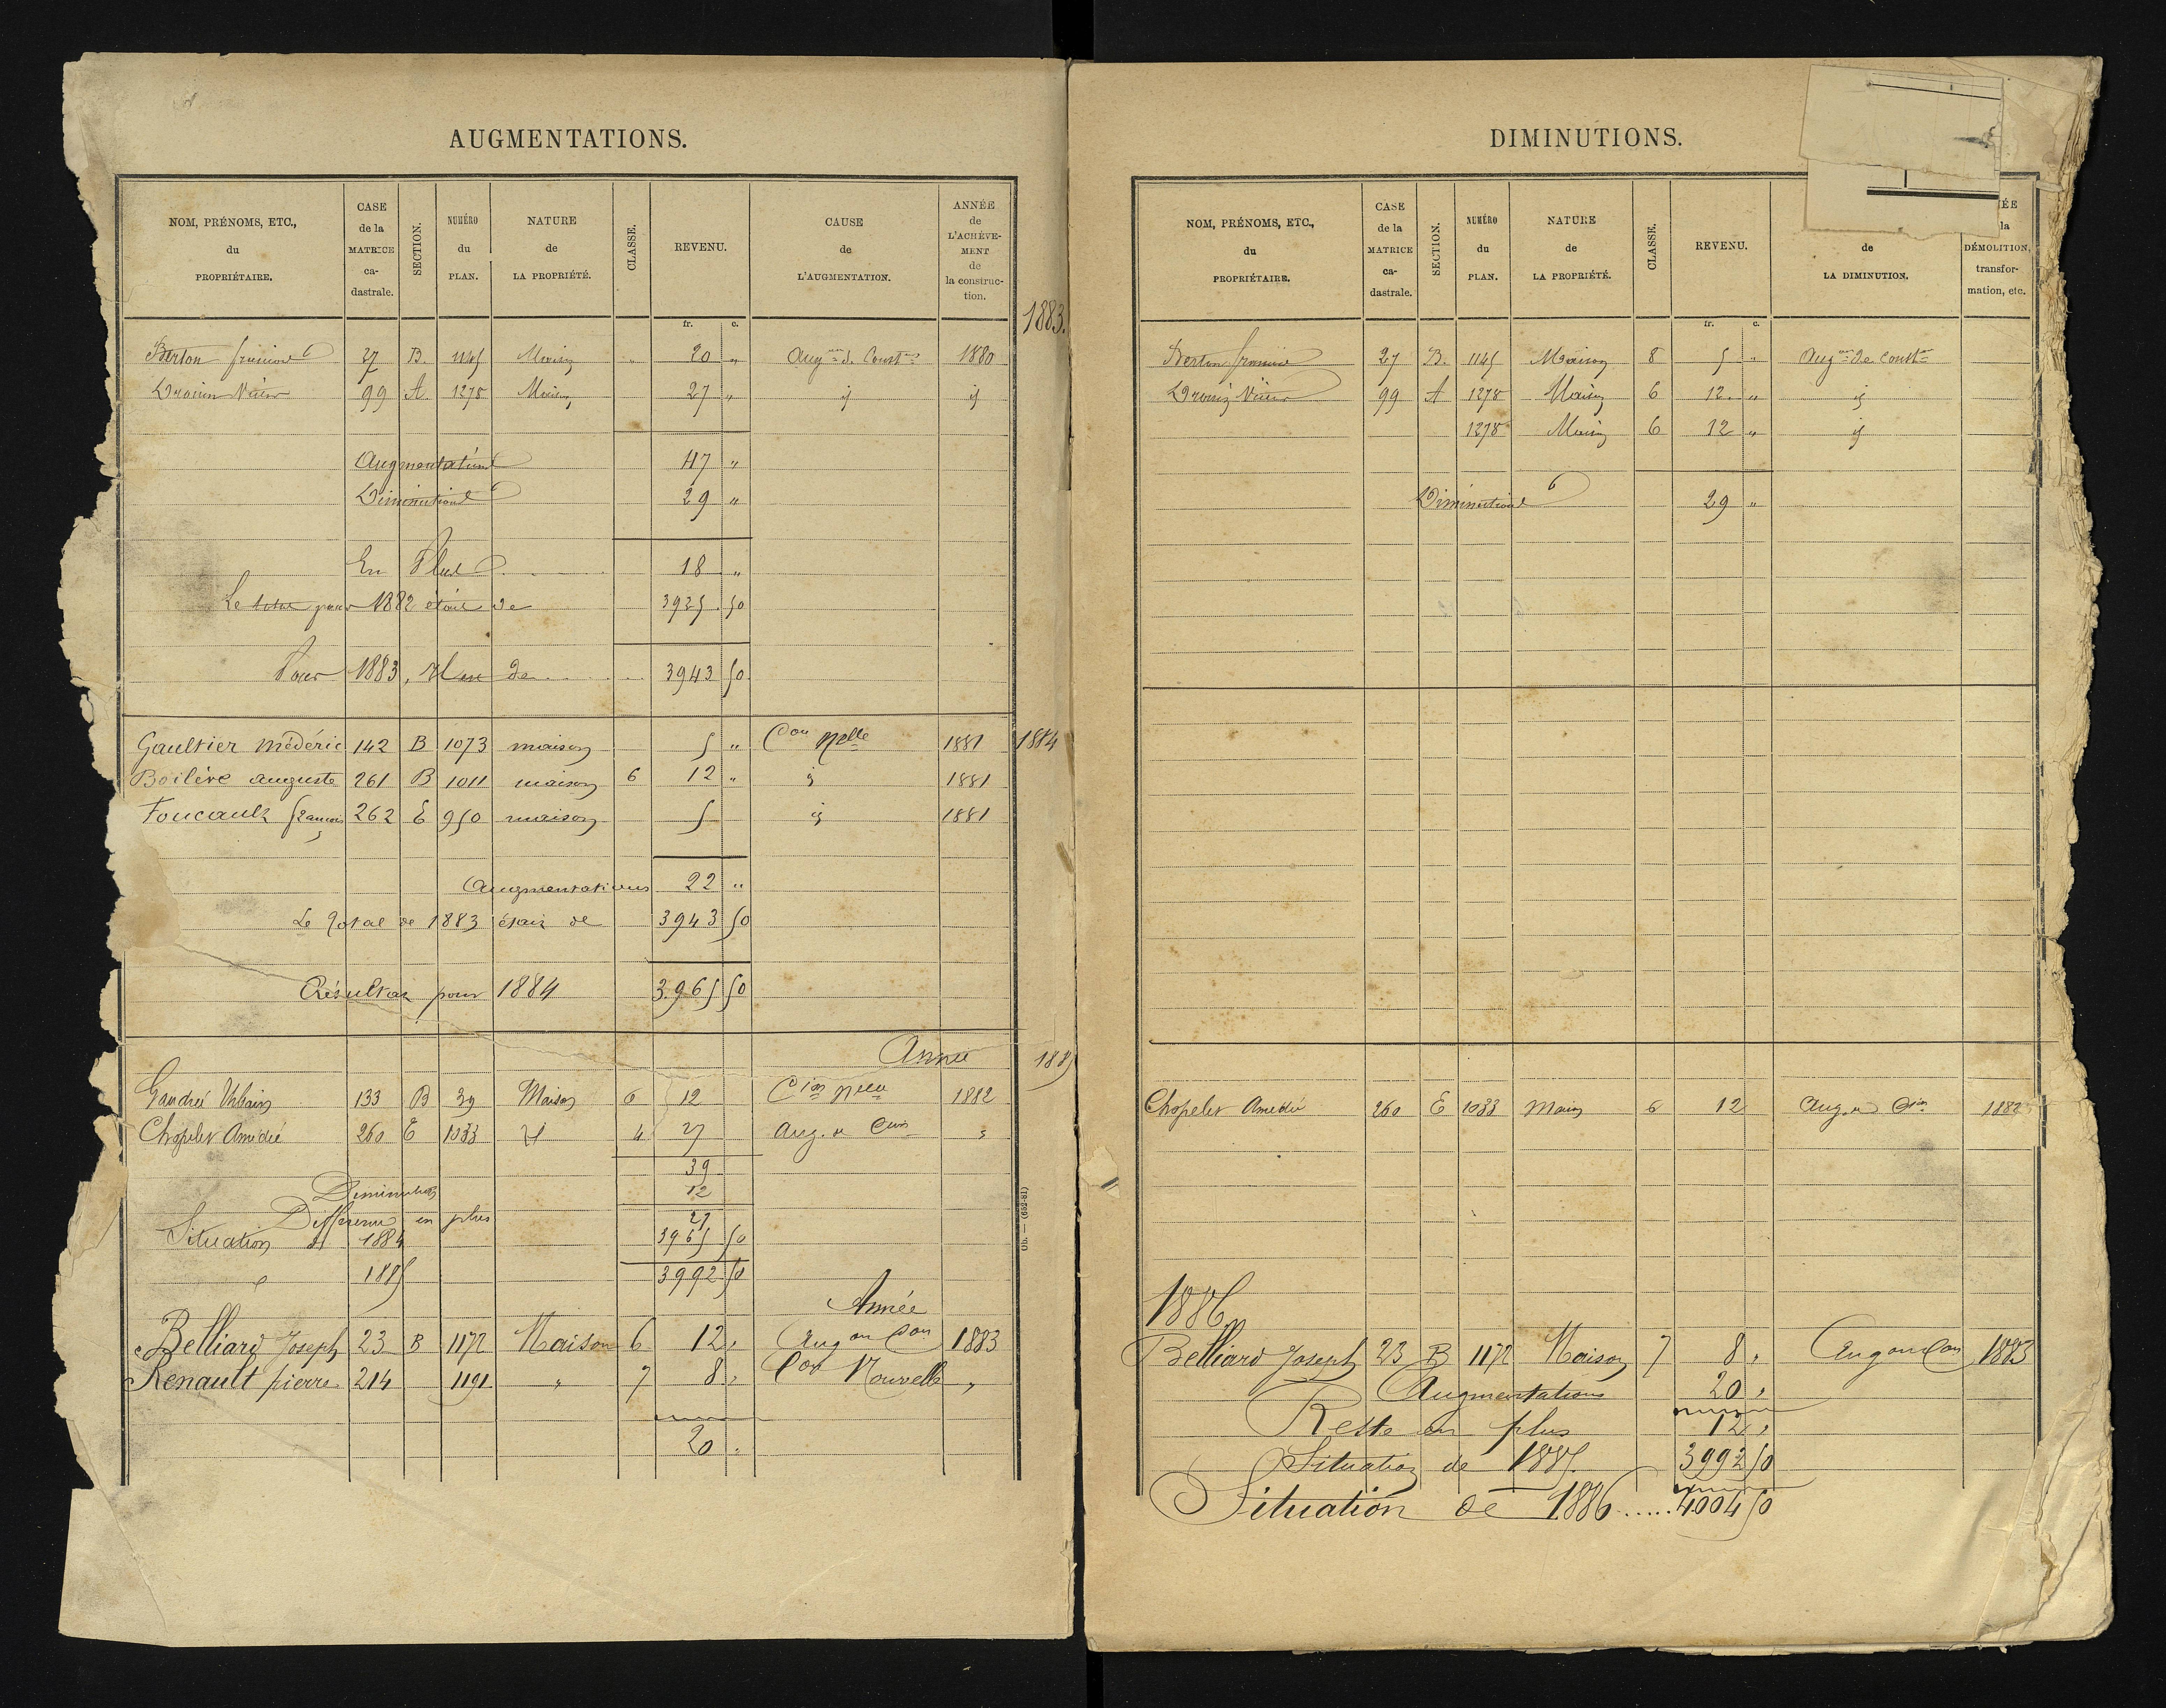 AUGMENTATIONS.
NOM, PRÉNOMS, ETC., du PROPRIÉTAIRE. CASE de la MATRICE ca-dastrale. SECTION. NUMÉRO du PLAN. NATURE de LA PROPRIÉTÉ. CLASSE. REVENU. CAUSE de L'AUGMENTATION. ANNÉE de L'ACHÈVE-MENT de la construc-tion.
fr. c.
1883.
Berton 27 B. 1145 Maison " 20 " Aug.on de Const.on 1880
99 A. 1278 Maison 27 " id id
Augmentations 47 "
Diminutions 29 "
En Plus 18 "
Le total pour 1882 était de 3925 50
Pour 1883, Il est de 3943 50
1884
Gaultier Médéric 142 B 1073 maison 5 " Con Nelle 1881
Boilève auguste 261 B 1011 maison 6 12 " id 1881
Foucault françois 262 E 950 maison 5 id 1881
Augmentations 22 "
Le Total de 1883 était de 3943 50
Résultat pour 1884 3.965 50
Année 1885
Gaudré Urbain 133 B 39 Maison 6 12 Con Nelle 1882
Chopelet Amédée 260 E 1033 id 4 27 Aug. de Con "
39
Diminution 12
Différence en plus 27
Situation de 1884 3965 50
" 1885 3992 50
Année
Belliard Joseph 23 B 1172 Maison 6 12 " Augon Con 1883
Renault pierre 214 1191 " 7 8 " Con Nouvelle "
20 "
Ob. — (652-81)
DIMINUTIONS.
NOM, PRÉNOMS, ETC., du PROPRIÉTAIRE. CASE de la MATRICE ca-dastrale. SECTION. NUMÉRO du PLAN. NATURE de LA PROPRIÉTÉ. CLASSE. REVENU. de LA DIMINUTION. la DÉMOLITION, transfor-mation, etc.
fr. c.
Berton 27 B. 1145 Maison 8 5 " Aug.on de Const.on
99 A 1278 Maison 6 12 " id
1278 Maison 6 12 " id
Diminutions 29 "
Chopelet Amédée 260 E 1033 Maison 6 12 Aug. de Con 1882
1886
Belliard Joseph 23 B 1172 Maison 7 8 " Augon Con 1883
Augmentations 20 "
Reste en plus 12 "
Situation de 1885 3992 50
Situation de 1886 ...... 4004 50